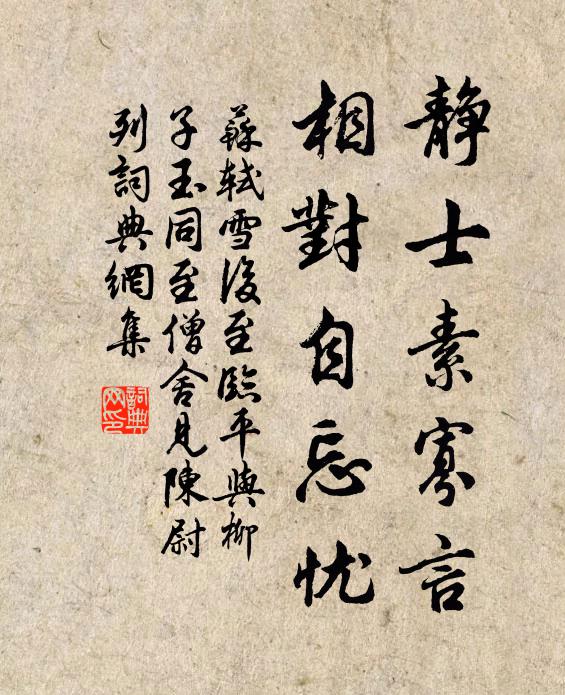 静士素寡言
相對自忘忧
蘇軾雪後至臨平與柳
子玉同至僧舍見陳尉
列詞典網集
詞典
网印